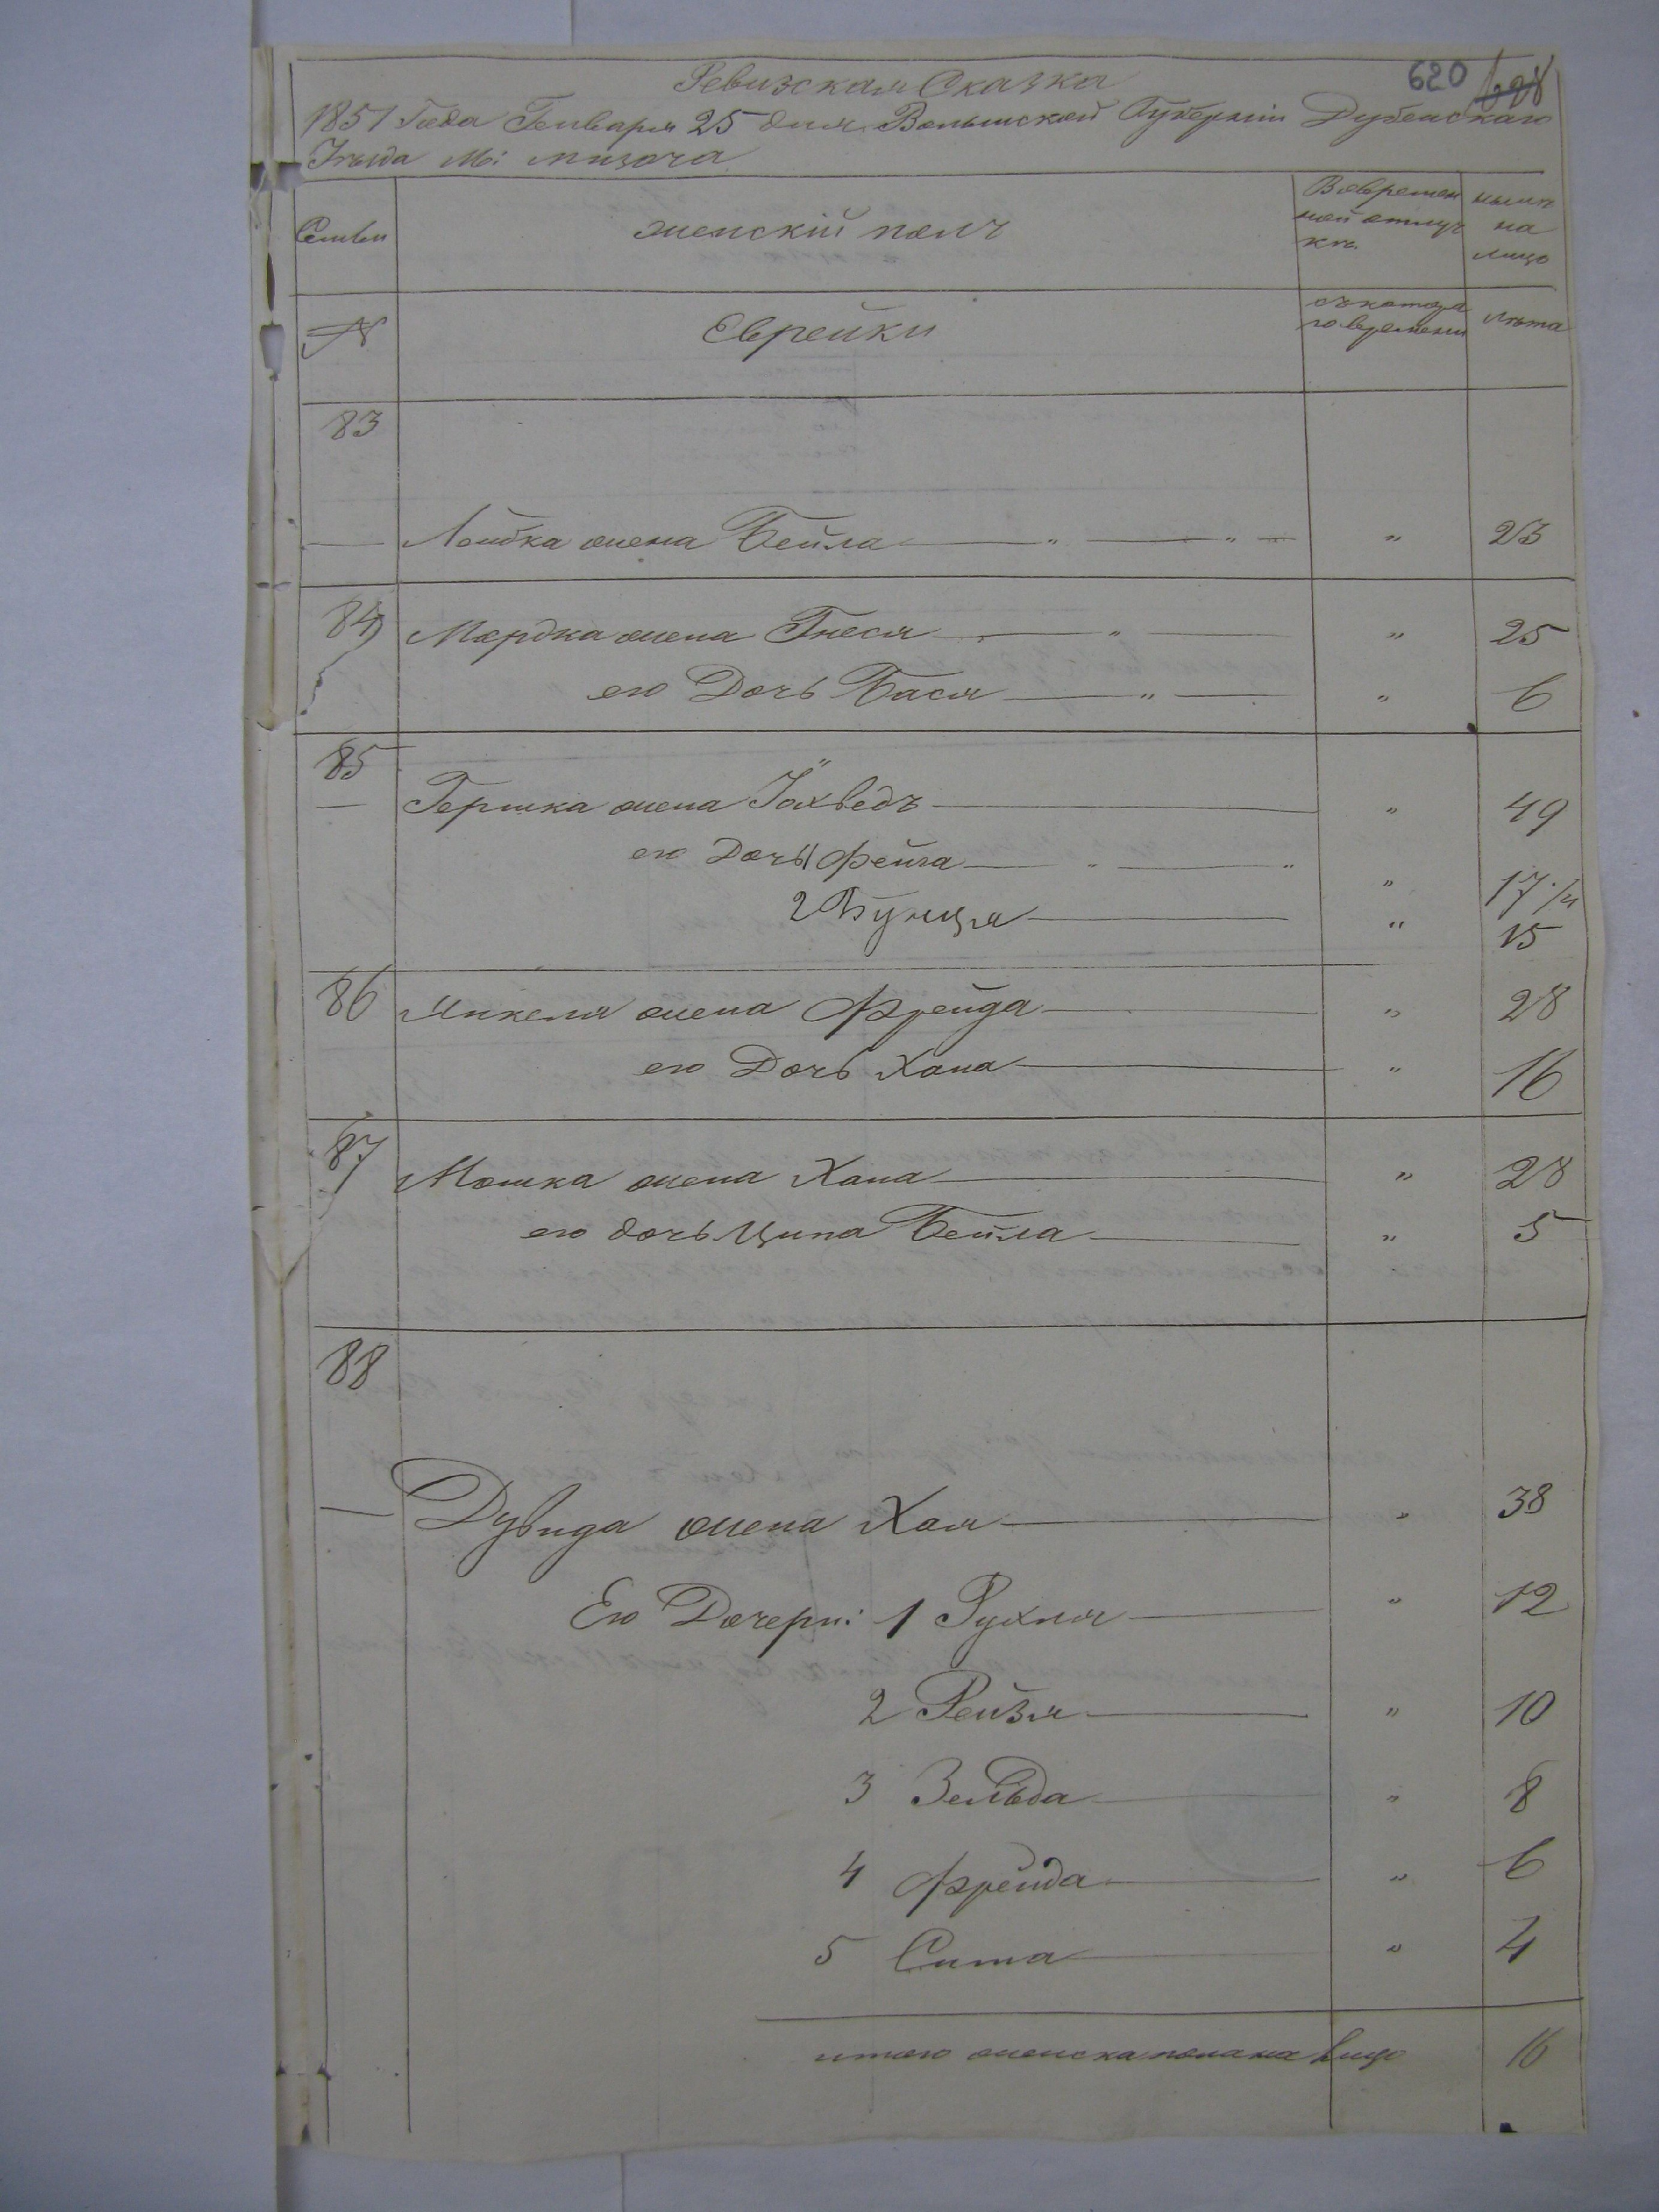 620 628
Ревизская Сказка
1851 Года Генваря 25 дня Волынской Губерніи Дубенскаго
Уѣзда М: Мизоча
Семьи
женскій полъ
Вовремен
ной отлуч
кѣ.
нынѣ
на
лицо
№
Еврейки
съ котора
го времени
лѣта
83
Лейбка жена Бейла " 23
84 Мордка жена Гнеся " 25
его Дочь Бася " 6
85
Гершка жена Іохведъ " 49
его Дочь 1 Фейга " 17
2 Бунця " 15
86 Янкеля жена Фрейда " 28
его Дочь Хана " 16
87
Мошка жена Хана " 28
его дочь Ципа Бейла " 5
88
Дувида жена Хая " 38
Его Дочери: 1 Рухля " 12
2 Рейзя " 10
3 Зельда " 8
4 Фрейда " 6
5 Сита " 4
итого женска пола на лицо 16